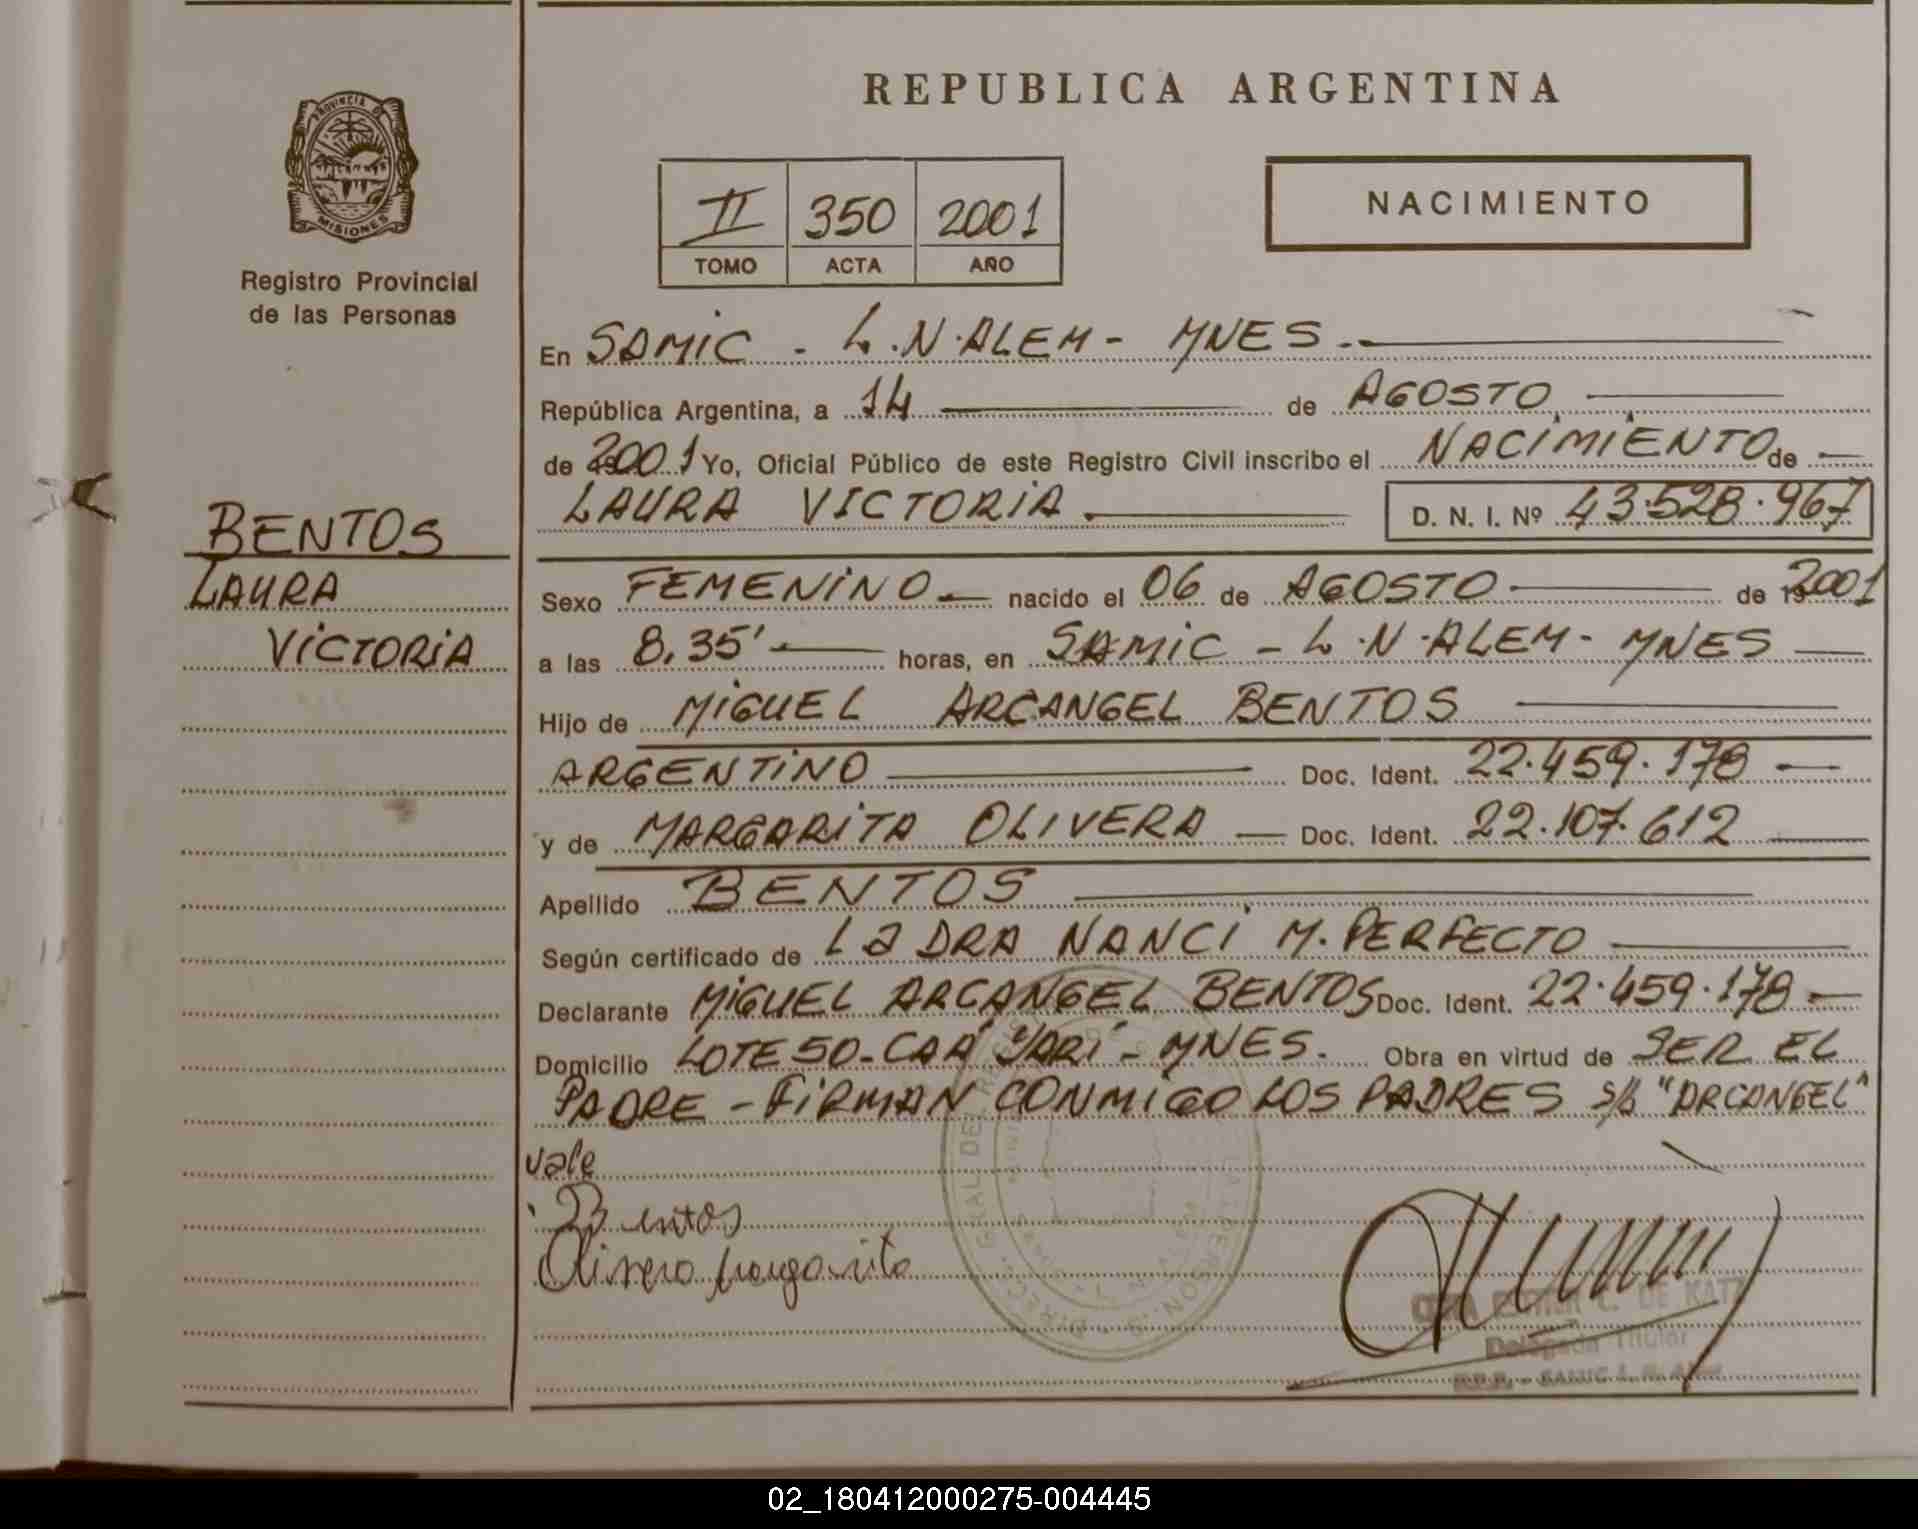 PROVINCIA DE
MISIONES
Registro Provincial
de las Personas
BENTOS
LAURA
VICTORIA
REPUBLICA ARGENTINA
II 350 2001
TOMO ACTA AÑO
NACIMIENTO
En SAMIC - L.N.ALEM - MNES.-
República Argentina, a 14 de AGOSTO
de 2001 Yo, Oficial Público de este Registro Civil inscribo el NACIMIENTO de
LAURA VICTORIA. D. N. I. Nº 43.528.967
Sexo FEMENINO nacido el 06 de AGOSTO de 2001
a las 8,35' horas, en SAMIC - L.N.ALEM - MNES
Hijo de MIGUEL ARCANGEL BENTOS
ARGENTINO Doc. Ident. 22.459.178
y de MARGARITA OLIVERA Doc. Ident. 22.107.612
Apellido BENTOS
Según certificado de La DRA NANCI M. PERFECTO
Declarante MIGUEL ARCANGEL BENTOS Doc. Ident. 22.459.178
Domicilio LOTE 50 - CAA YARI - MNES. Obra en virtud de SER EL
PADRE - FIRMAN CONMIGO LOS PADRES s/b "ARCANGEL"
vale
Bentos
Olivera Margarita
DE KATZ
Delegada Titular
02_180412000275-004445